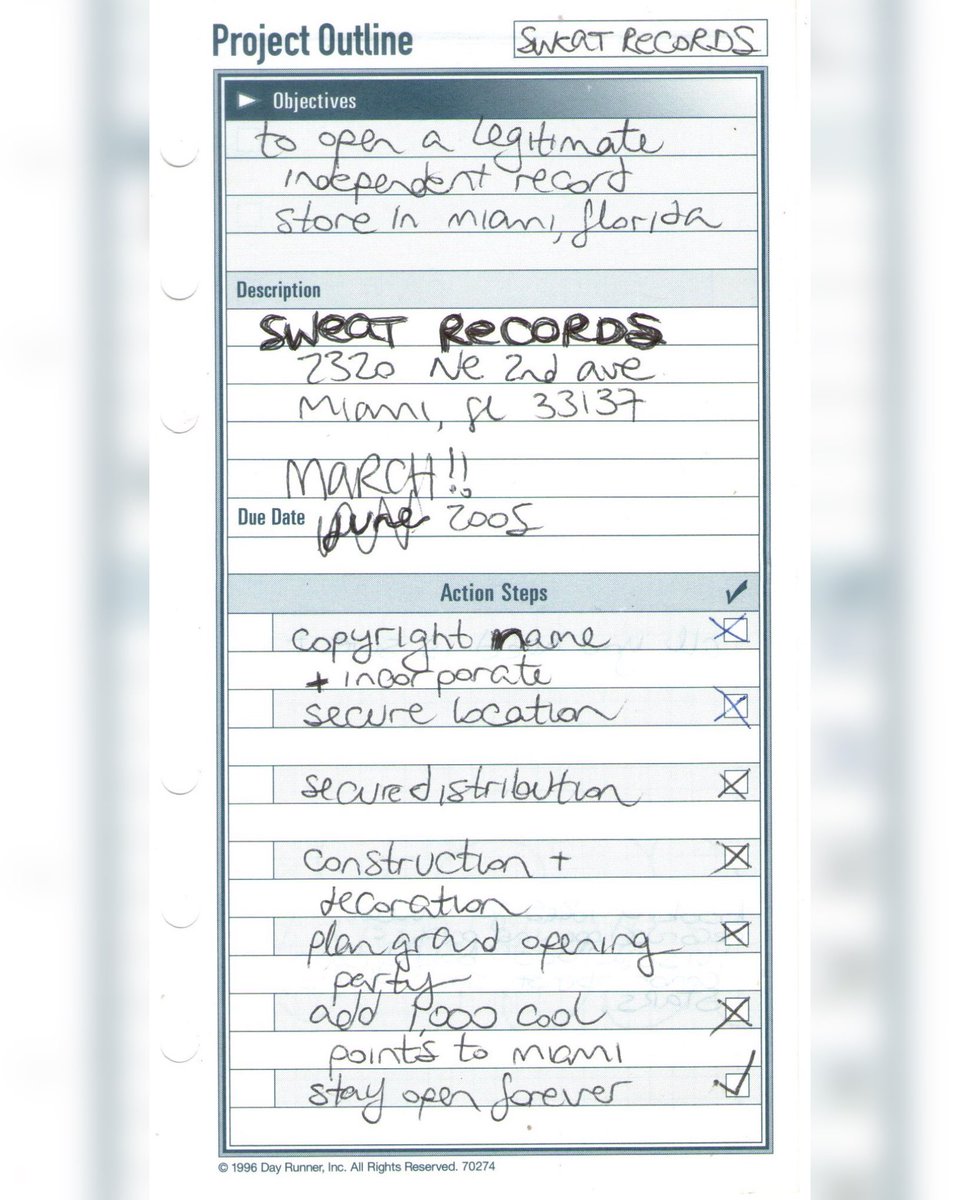 Project Outline
SWEAT RECORDS
Objectives
to open a legitimate
independent record
store in miami, florida
Description
SWEAT RECORDS
2320 NE 2nd ave
Miami, fl 33137
MARCH!!
Due Date june 2005
Action Steps ✓
copyright name
+ incorporate
secure location
secure distribution
construction +
decoration
plan grand opening
party
add 1,000 cool
points to miami
stay open forever
© 1996 Day Runner, Inc. All Rights Reserved. 70274